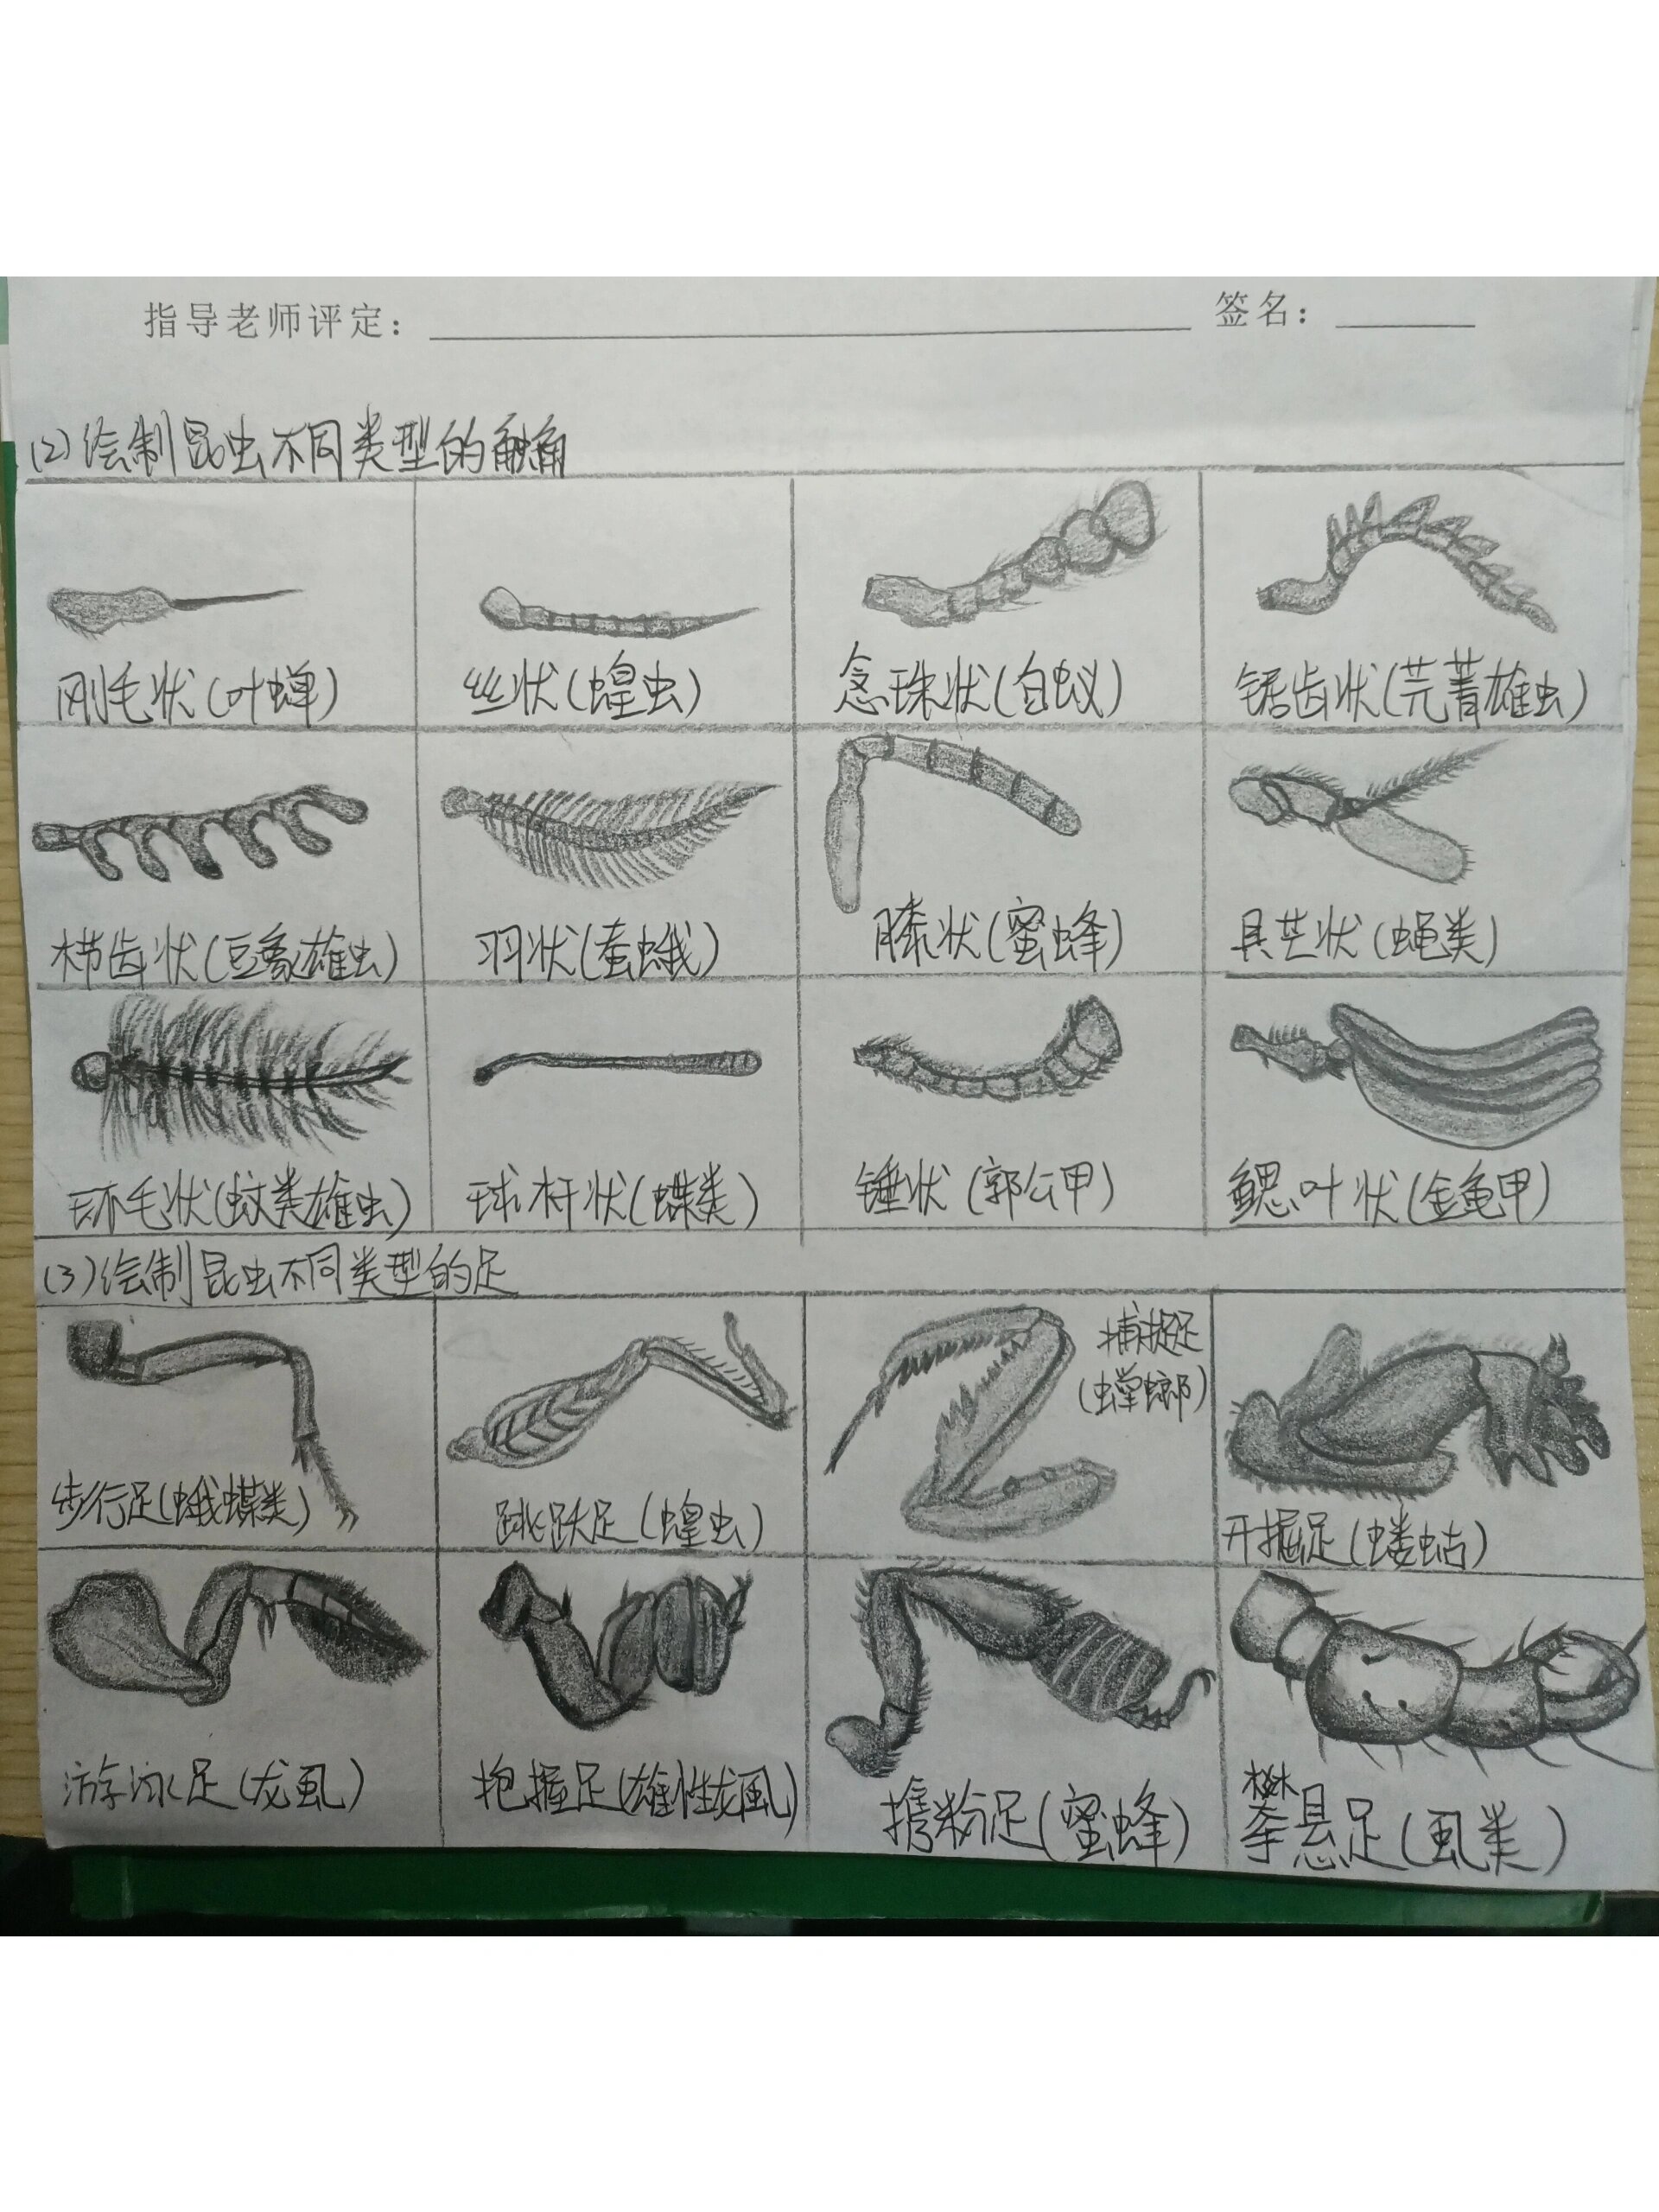 指导老师评定： 签名：
(2)绘制昆虫不同类型的触角
刚毛状(叶蝉) 丝状(蝗虫) 念珠状(白蚁) 锯齿状(芫菁雄虫)
栉齿状(豆象雄虫) 羽状(蚕蛾) 膝状(蜜蜂) 具芒状(蝇类)
环毛状(蚊类雄虫) 球杆状(蝶类) 锤状(郭公甲) 鳃叶状(金龟甲)
(3)绘制昆虫不同类型的足
捕捉足
(螳螂)
步行足(蛾蝶类) 跳跃足(蝗虫) 开掘足(蝼蛄)
游泳足(龙虱) 抱握足(雄性龙虱) 携粉足(蜜蜂) 攀悬足(虱类)